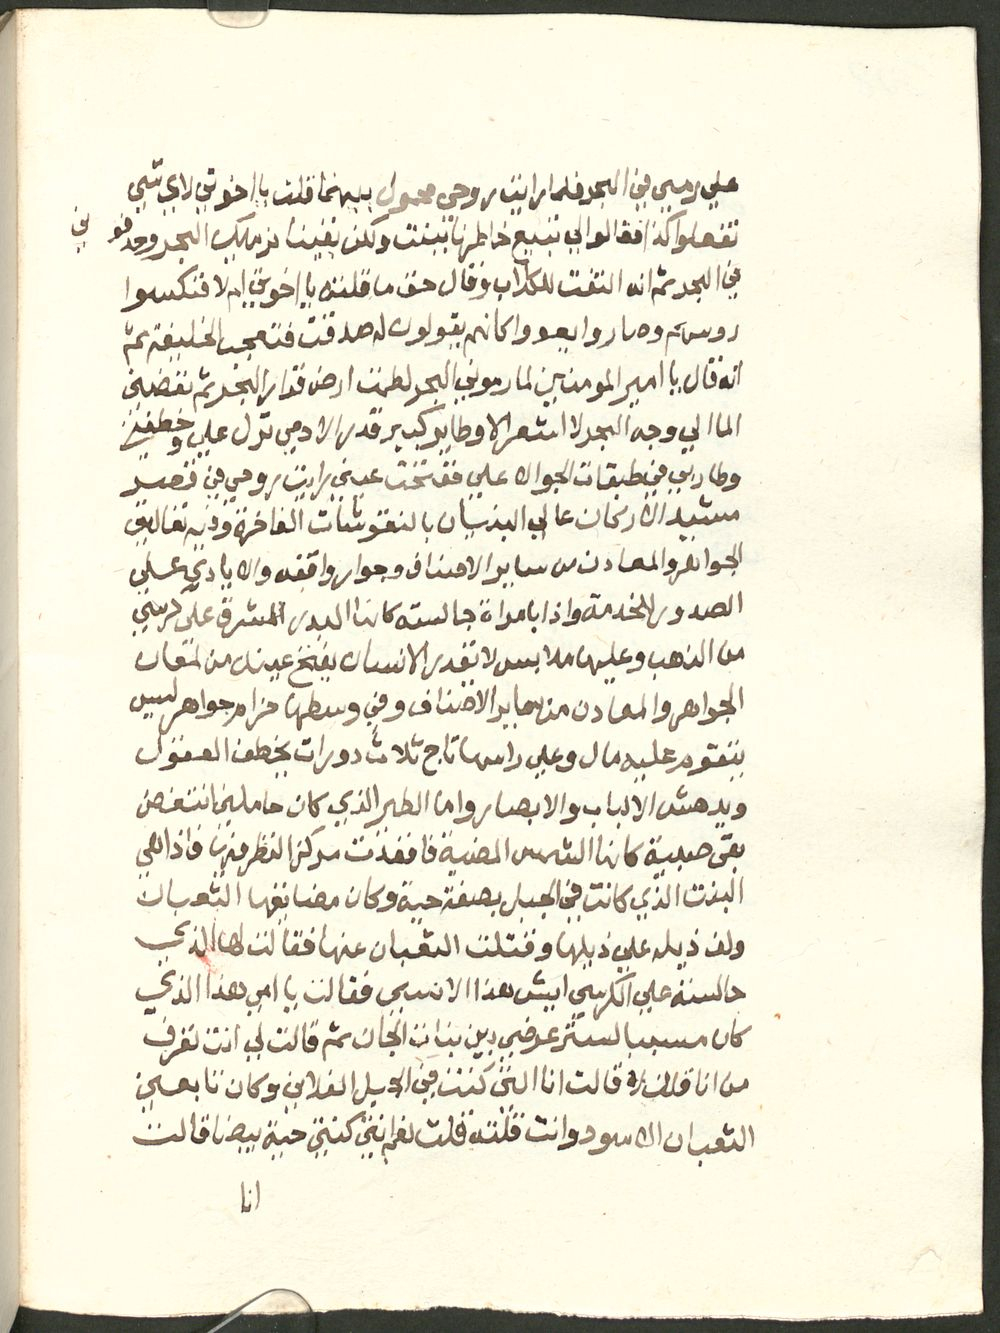 علي رميي في البحر فلما رايت روحي محمول بينهما قلت يا اخوتي لاي شي
تفعلوا كذا فقالوا لي تبيع خاطرنا ببنت ولكن بقينا نرميك البحر وحدفو ني
في البحر ثم انه التفت للكلاب وقال حق ما قلته يا اخوتي ام لا فنكسوا
روسهم وصاروا يعووا كانهم يقولون له صدقت فتعجب الخليفة ثم
انه قال يا امير المومنين لما رموني البحر لطمت ارض قرار البحر ثم نفضني
الما الي وجه البحر لا اشعر الا وطاير كبير قدر الادمي نزل علي وخطفني
وطار بي في طبقات الجو الاعلي ففتحت عيني رايت روحي في قصر
مشيد الاركان عالي البنيان بالنقوشات الفاخرة وفيه تعاليق
الجواهر والمعادن من ساير الاصناف وجوار واقفه والايادي علي
الصدور للخدمة واذا بامراة جالسه كانها البدر المشرق علي كرسي
من الذهب وعليها ملابس لا يقدر الانسان يفتح عينه من لمعان
الجواهر والمعادن من ساير الاصناف وفي وسطها حزام جواهر ليس
يتقوم عليه مال وعلي راسها تاج ثلاث دورات يخطف العقول
ويدهش الالباب والابصار واما الطير الذي كان حاملني انتفض
بقي صبية كانها الشمس المضية فانفذت مركز النظر فيها فاذا هي
البنت الذي كانت في الجبل بصفة حية وكان مضايقها الثعبان
ولف ذيله علي ذيلها وقتلت الثعبان عنها فقالت لها الذي
جالسة علي الكرسي ايش هذا الانسي فقالت يا امي هذا الذي
كان مسببا لستر عرضي بين بنات الجان ثم قالت لي انت تعرف
من انا قلت لا قالت انا التي كنت في الجبل الفلاني وكان تابعني
الثعبان الاسود وانت قلته قلت لها نعم انتي كنتي حية بيضا قالت
انا